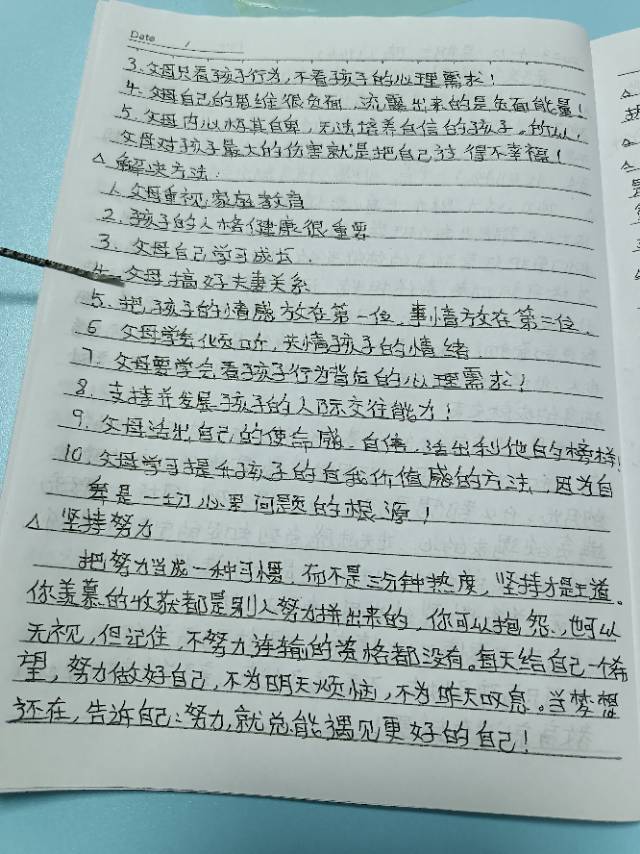 Date /
3、父母只看孩子行为,不看孩子的心理需求!
4、父母自己的思维很负面,流露出来的是负面能量!
5、父母内心极其自卑,无法培养自信的孩子。所以!
父母对孩子最大的伤害就是把自己过得不幸福!
△ 解决方法:
1、父母重视家庭教育
2、孩子的人格健康很重要
3、父母自己学习成长.
4、父母搞好夫妻关系
5、把孩子的情感放在第一位、事情放在第二位.
6、父母学会倾听,共情孩子的情绪.
7、父母要学会看孩子行为背后的心理需求!
8、支持并发展孩子的人际交往能力!
9、父母活出自己的使命感、自信、活出利他的榜样!
10、父母学习提升孩子的自我价值感的方法、因为自
卑是一切心里问题的根源!
△ 坚持努力
把努力当成一种习惯,而不是三分钟热度,坚持才是王道。
你羡慕的收获都是别人努力拼出来的,你可以抱怨,也可以
无视,但记住,不努力连输的资格都没有。每天给自己一个希
望,努力做好自己,不为明天烦恼,不为昨天叹息。当梦想
还在,告诉自己:努力,就总能遇见更好的自己!